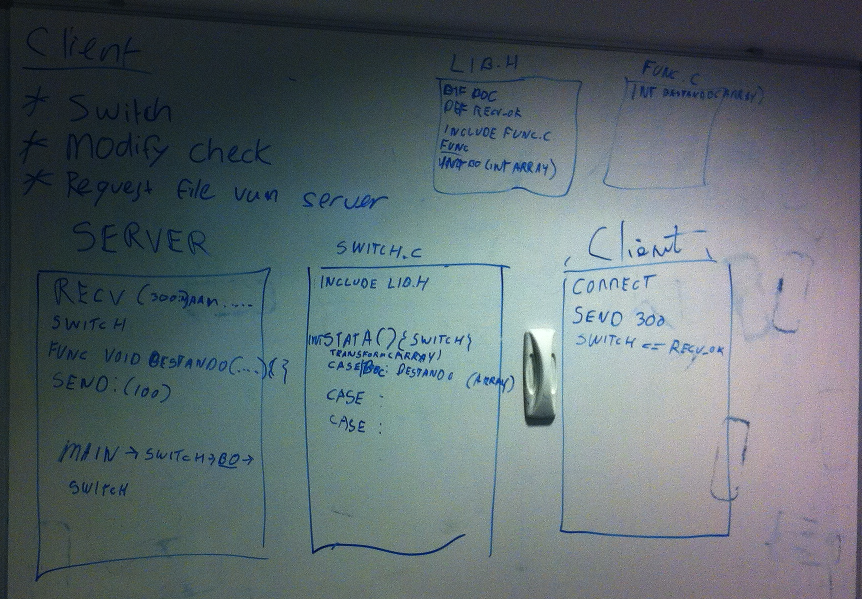 Client
* Switch
* Modify check
* Request file van server
LIB.H
DEF BOC
DEF RECV_OK
INCLUDE FUNC.C
FUNC
INT DO (INT ARRAY)
FUNC.C
INT BESTANDOC(ARRAY)
SERVER
RECV (300:)
SWITCH
FUNC VOID BESTANDO(...){}
SEND:(100)
MAIN → SWITCH → BO →
SWITCH
SWITCH.C
INCLUDE LIB.H
INT STATA(){SWITCH}
TRANSFORM(ARRAY)
CASE BOC: BESTANDO (ARRAY)
CASE :
CASE :
Client
CONNECT
SEND 300
SWITCH <= RECV_OK